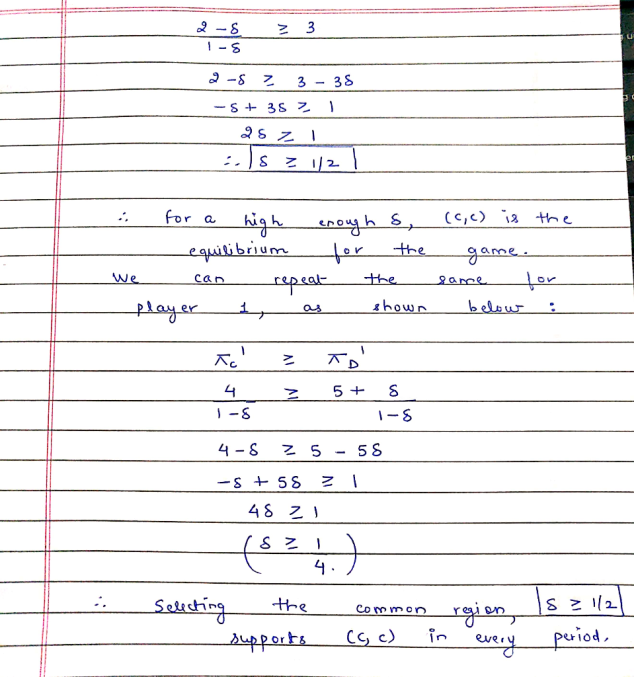 2 - δ ≥ 3
1 - δ
2 - δ ≥ 3 - 3δ
- δ + 3δ ≥ 1
2δ ≥ 1
∴ δ ≥ 1/2
∴ for a high enough δ, (C,C) is the
equilibrium for the game.
We can repeat the same for
player 1, as shown below :
π_C¹ ≥ π_D¹
4 ≥ 5 + δ
1 - δ 1 - δ
4 - δ ≥ 5 - 5δ
- δ + 5δ ≥ 1
4δ ≥ 1
(δ ≥ 1
4.)
∴ Selecting the common region, δ ≥ 1/2
supports (C, C) in every period.